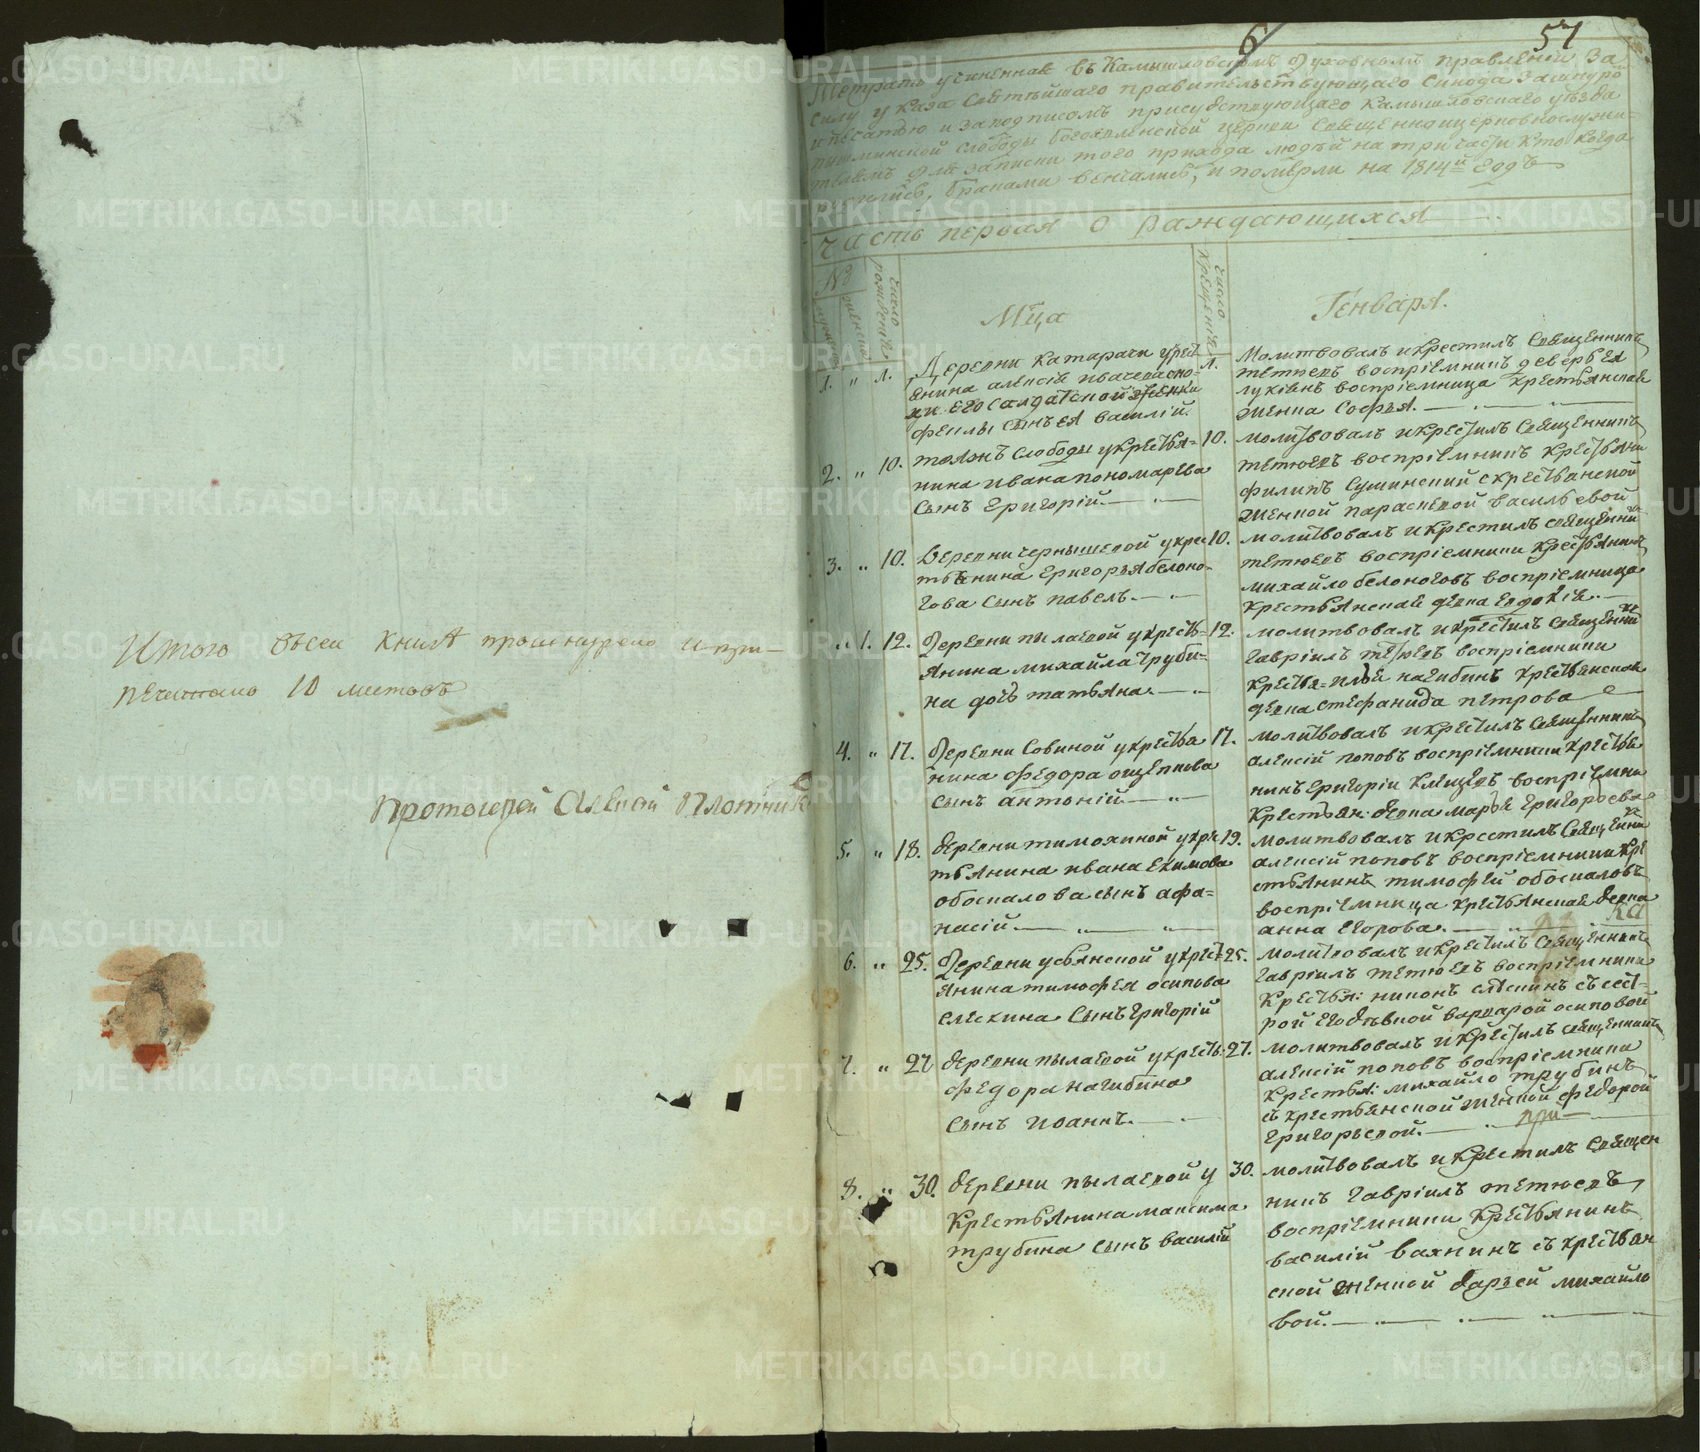 Итого въсеи книгѣ прошнуреno и при-
печатано 10 листовъ
Протоиерей Алексѣй Плотник
6
57
учиненнае въ Камышловскомъ Духовномъ правленiи За
силу указа Святѣйшаго правительствующаго Синода Зашнуро
и печатью и заподписомъ присудствующаго Камышловскаго уѣзда
пышминской слободы богоявленской церкви Священноцерковнослужи-
телямъ для записки того прихода людѣй на три части кто когда
браками венчались, и померли на 1814й годъ
часть первая о раждающихся
№
число рождения
Мца
число крещения
Генваря.
1. „ 1. Деревни Катарачи у крест
янина алексiя
его салдатской женки
феклы сынъ ея василiй.
1. Молитвовалъ и крестилъ Священникъ
тетюевъ воспрiемникъ
воспрiемница крестьянская
женка Софья.
2. „ 10. слободы укрестья-
нина ивана пономарева
сынъ григорiй.
10. молитвовалъ и крестилъ священникъ
тетюевъ воспрiемникъ крестьяни
филипъ Сушинский с крестьянской
женкой параскевой васильевой
3. „ 10. Деревни чернышевой укрес
тьянина григорья белоно-
гова сынъ павелъ.
10. молитвовалъ и крестилъ священни
тетюевъ воспрiемники крестьянинъ
михайло белоноговъ воспрiемница
крестьянская девка евдокiя.
„ 1. 12. Деревни пылаевой укресть-
янина михайла труби-
на дочь татьяна.
12. молитвовалъ и крестилъ священни
гаврiилъ тетюевъ воспрiемники
крестья- илья нагибинъ крестьянская
девка стефанида петрова
4. „ 17. Деревни Савиной укрестья
нина федора ощепкова
сынъ антонiй.
17. молитвовалъ и крестилъ священникъ
алексiй поповъ воспрiемники крестья
нинъ григорiи клещевъ воспрiемни
крестьян: девка марья григорьева
5. „ 18. деревни тимохиной укре
тьянина ивана екимова
обоскалова сынъ афа-
насiй.
19. молитвовалъ и крестилъ священни
алексiй поповъ воспрiемники кре
стьянинъ тимофей обоскаловъ
воспрiемница крестьянская девка
анна егорова.
6. „ 25. Деревни устьянской укресть
янина тимофея осипова
елескина сынъ григорiй
25. молитвовалъ и крестилъ священникъ
гаврiилъ тетюевъ воспрiемники
крестья: никонъ елескинъ съ сест-
рой его девкой варварой осиповой
7. „ 27 деревни пылаевой укресть.
федора нагибина
сынъ иоаннъ.
27. молитвовалъ и крестилъ священникъ
алексiй поповъ воспрiемники
крестья: михайло трубинъ
съ крестьянской женкой федорой
григорьевой.
8. „ 30. деревни пылаевой у
крестьянина максима
трубина сынъ василiй
30. молитвовалъ и крестилъ священ
никъ гаврiилъ тетюевъ
воспрiемники крестьянинъ
василiй вахнинъ съ крестьян
ской женкой дарьей михайло
вой.